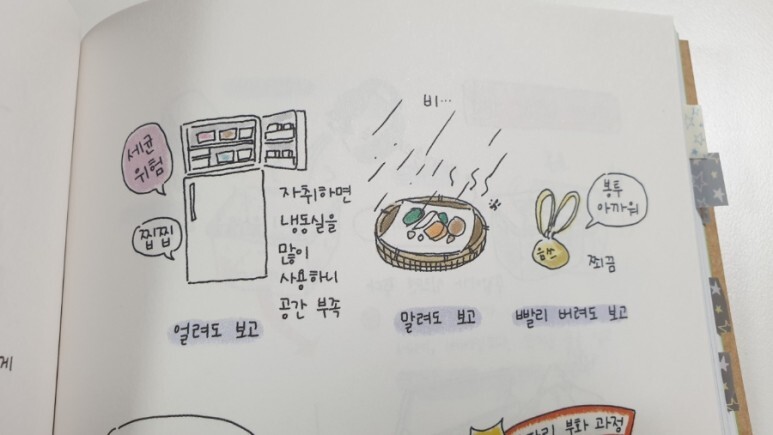 세균
위험
찝찝
자취하면
냉동실을
많이
사용하니
공간 부족
얼려도 보고
비…
말려도 보고
봉투
아까워
음쓰
쬐끔
빨리 버려도 보고
게
부화 과정